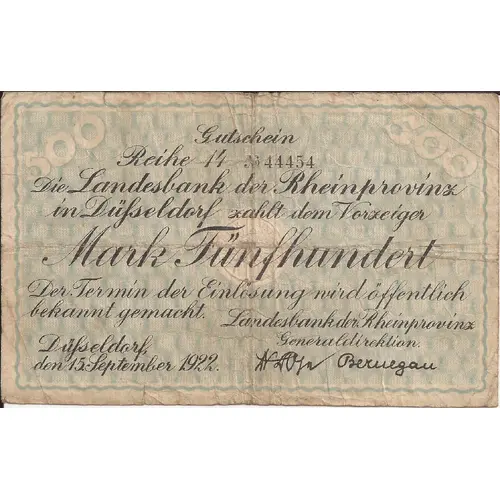 500 500
Gutschein
Reihe 14 № 44454
Die Landesbank der Rheinprovinz
in Düsseldorf zahlt dem Vorzeiger
Mark Fünfhundert
Der Termin der Einlösung wird öffentlich
bekannt gemacht.
Landesbank der Rheinprovinz
Generaldirektion.
Düsseldorf,
den 15. September 1922.
Bernegau